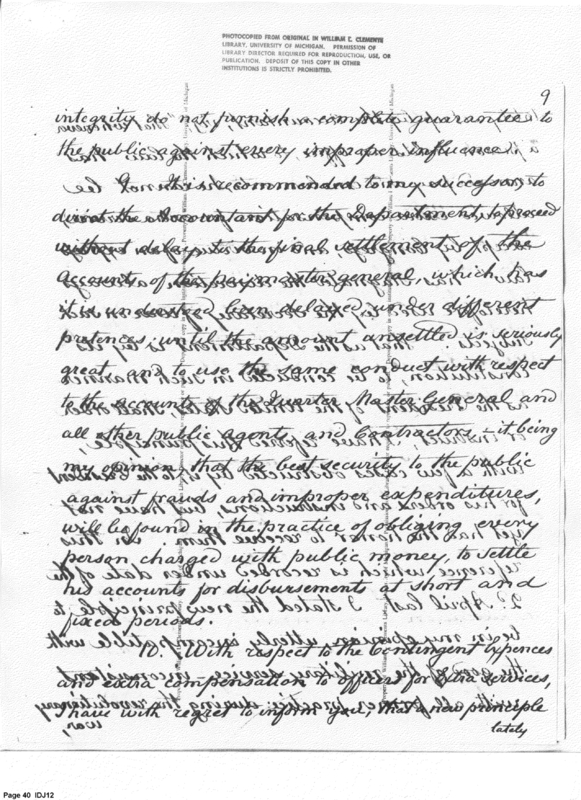 PHOTOCOPIED FROM ORIGINAL IN WILLIAM E. CLEMENTS
LIBRARY, UNIVERSITY OF MICHIGAN. PERMISSION OF
LIBRARY DIRECTOR REQUIRED FOR REPRODUCTION, USE, OR
PUBLICATION. DEPOSIT OF THIS COPY IN OTHER
INSTITUTIONS IS STRICTLY PROHIBITED.
9
integrity do not furnish a complete guarantee to
the public against every improper influence.
recommended to my successor, to
direct the Accountant for the Department, to proceed
without delay to the final settlement of the
accounts of the paymaster general, which has
it is understood been delayed under different
pretences, until the amount unsettled is seriously
great, and to use the same conduct with respect
to the accounts of the Quarter Master General and
all other public agents and Contractors - it being
my opinion, that the best security to the public
against frauds and improper expenditures,
will be found in the practice of obliging every
person charged with public money, to settle
his accounts for disbursements at short and
fixed periods.
10. With respect to the Contingent expences
and extra compensation to officers for extra services,
I have with regret to inform you, that a new principle
lately
Page 40 IDJ12